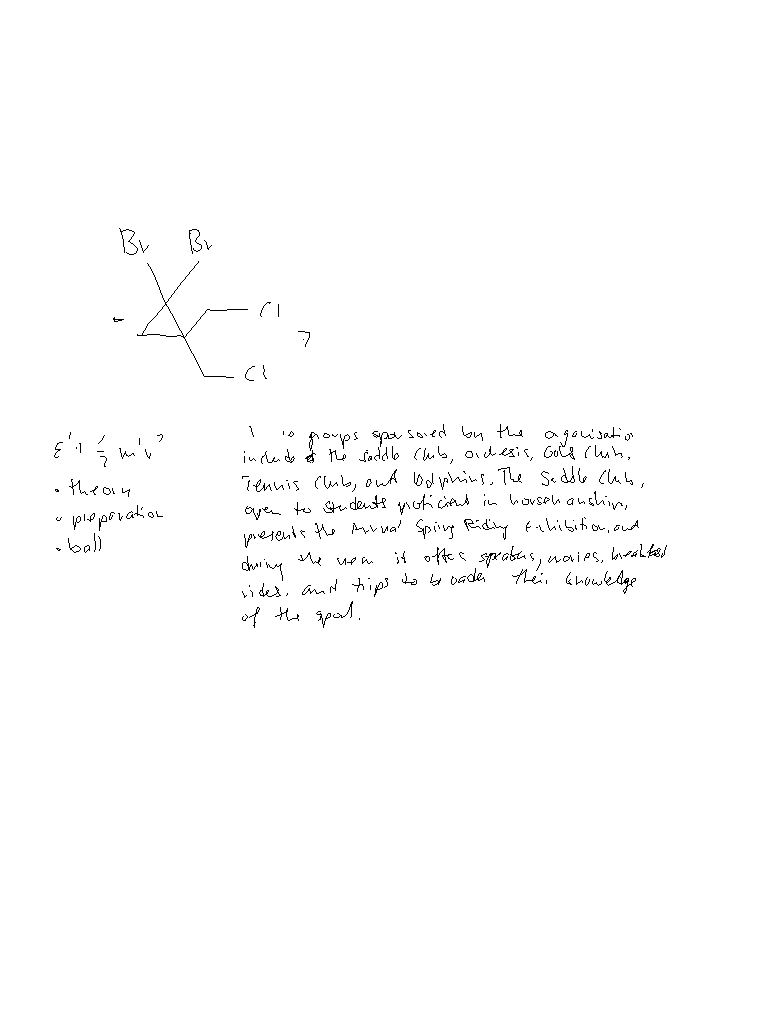 Br Br
Cl
Cl
• theory
• preparation
• ball
groups sponsored by the organisation
include the Saddle Club, Orchesis, Golf Club,
Tennis Club, and Dolphins. The Saddle Club,
open to students proficient in horsemanship,
presents the Annual Spring Riding Exhibition, and
during the year it offers speakers, movies, breakfast
rides, and trips to broaden their knowledge
of the sport.